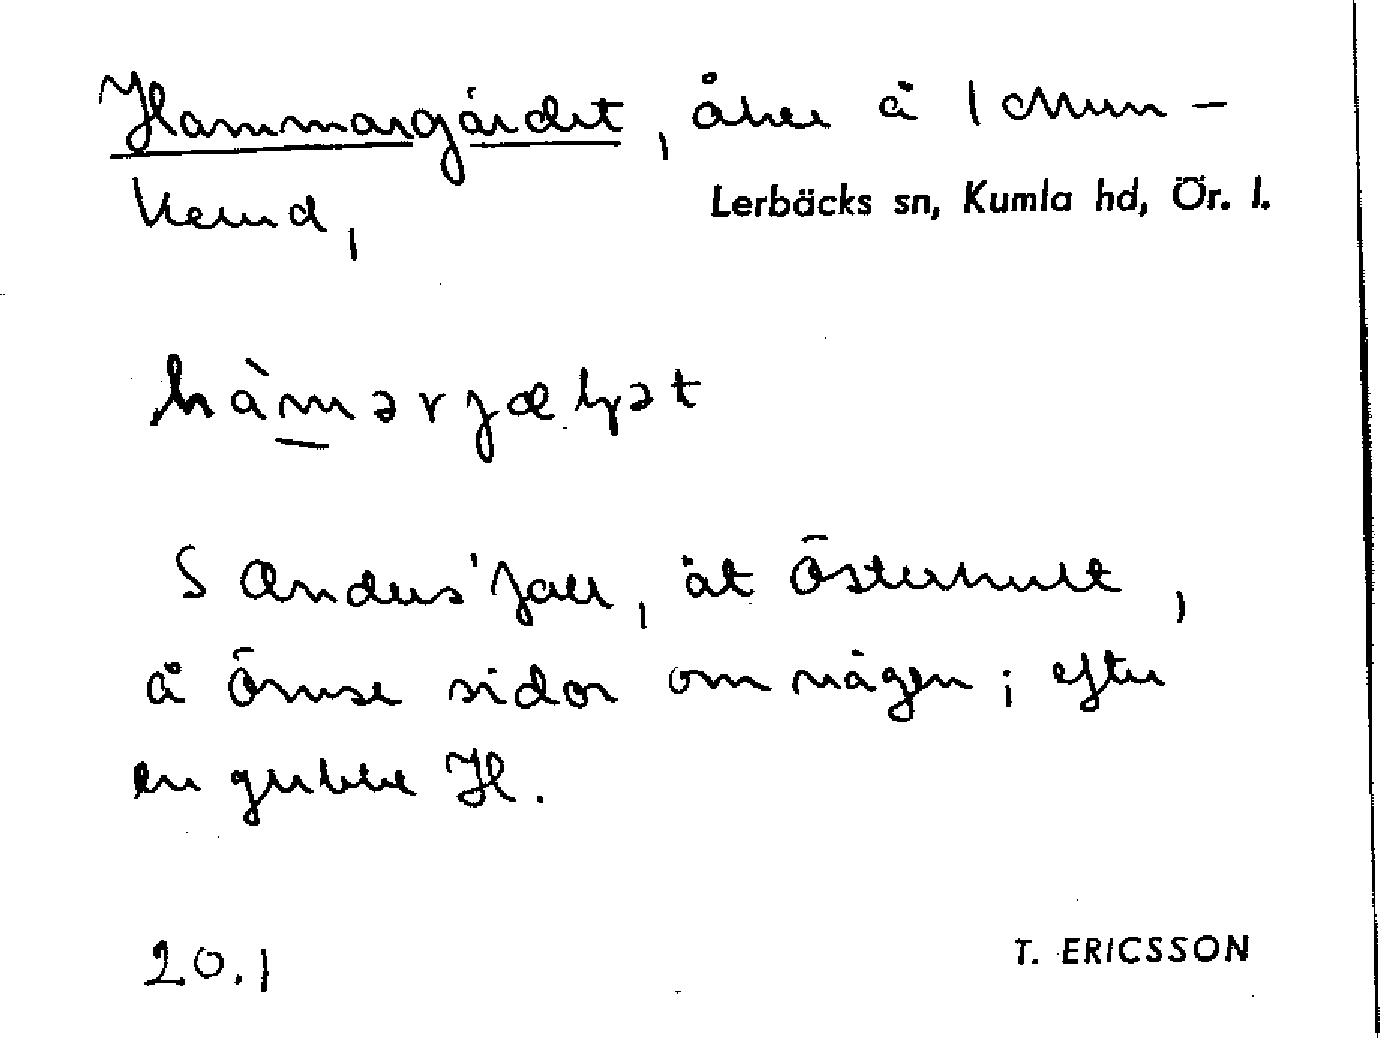 Hammargärdet, åker å 1 Mun-
kerud,
Lerbäcks sn, Kumla hd, Ör. l.
hàmərjæ
S Anders'jall, åt Österhult,
å ömse sidor om vägen; efter
en gubbe H.
20.1
T. ERICSSON